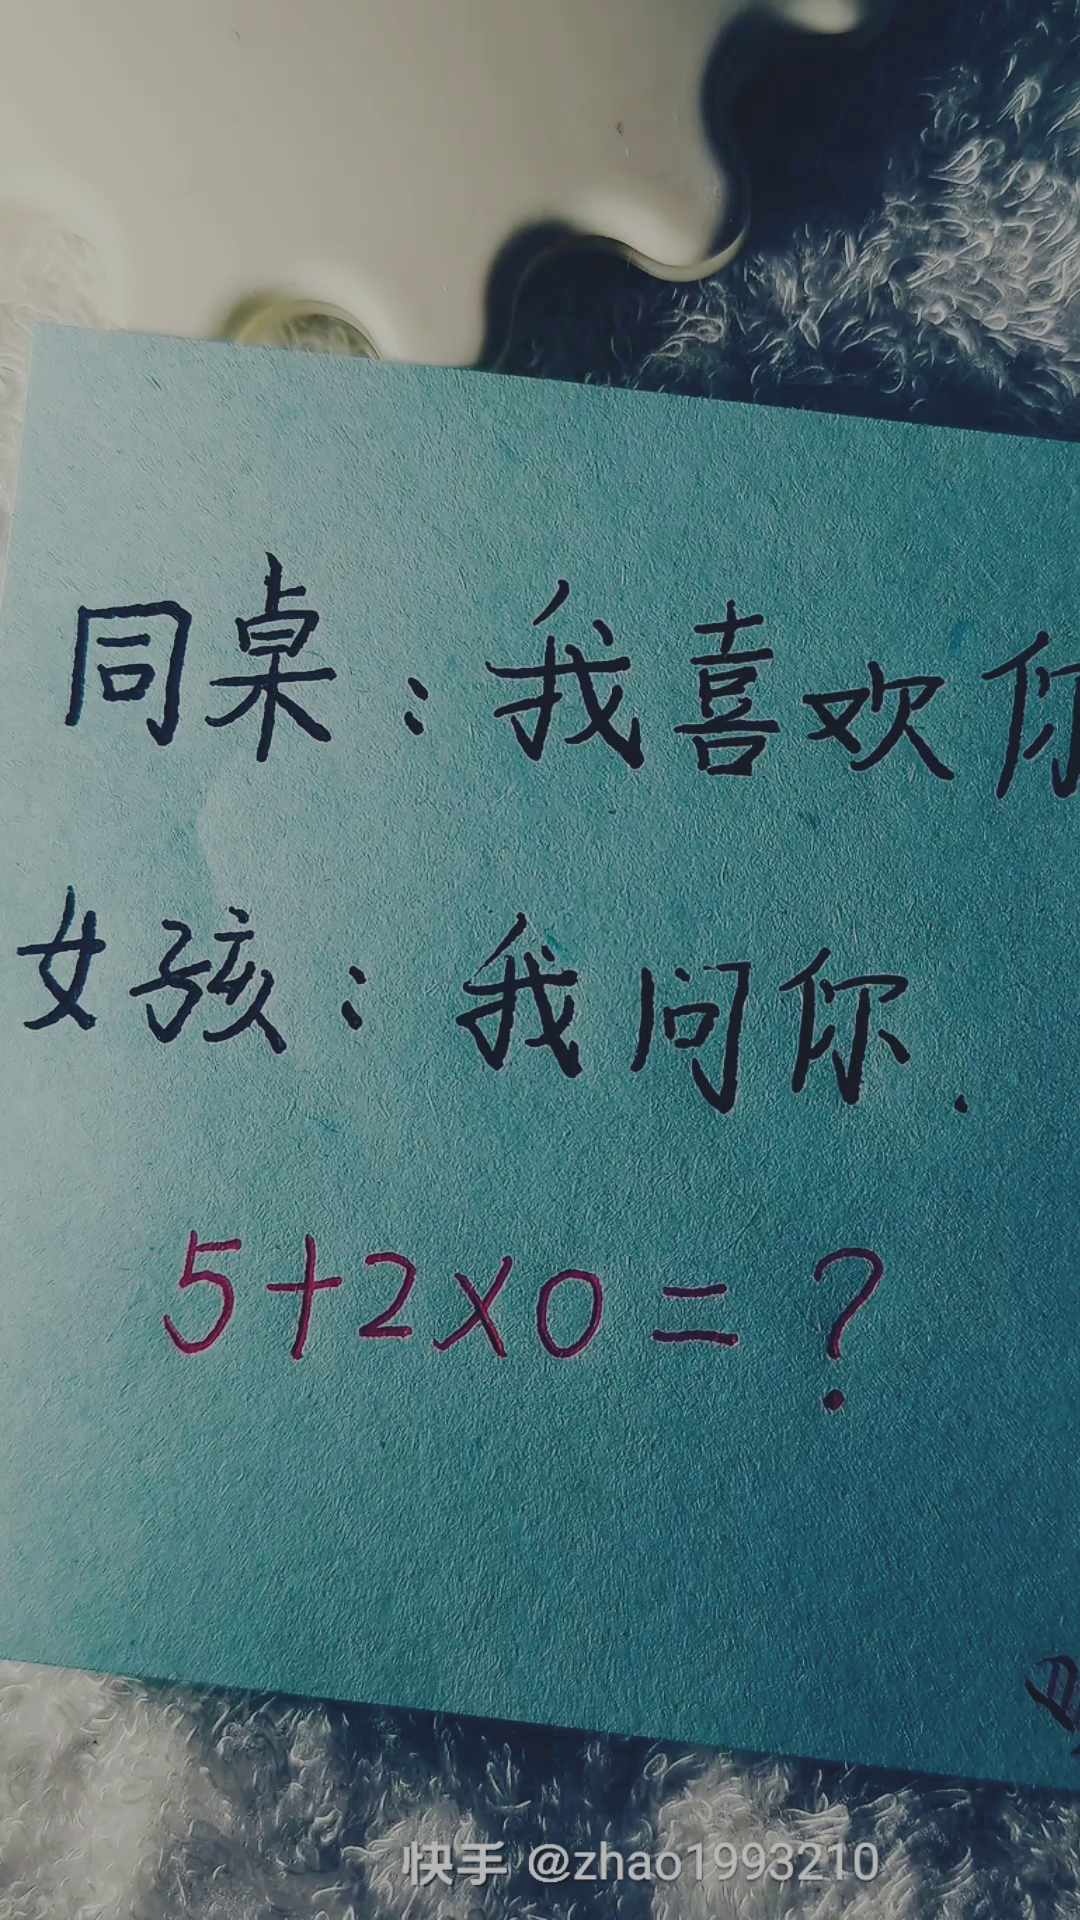 同桌：我喜欢你
女孩：我问你.
5+2×0=?
快手 @zhao1993210